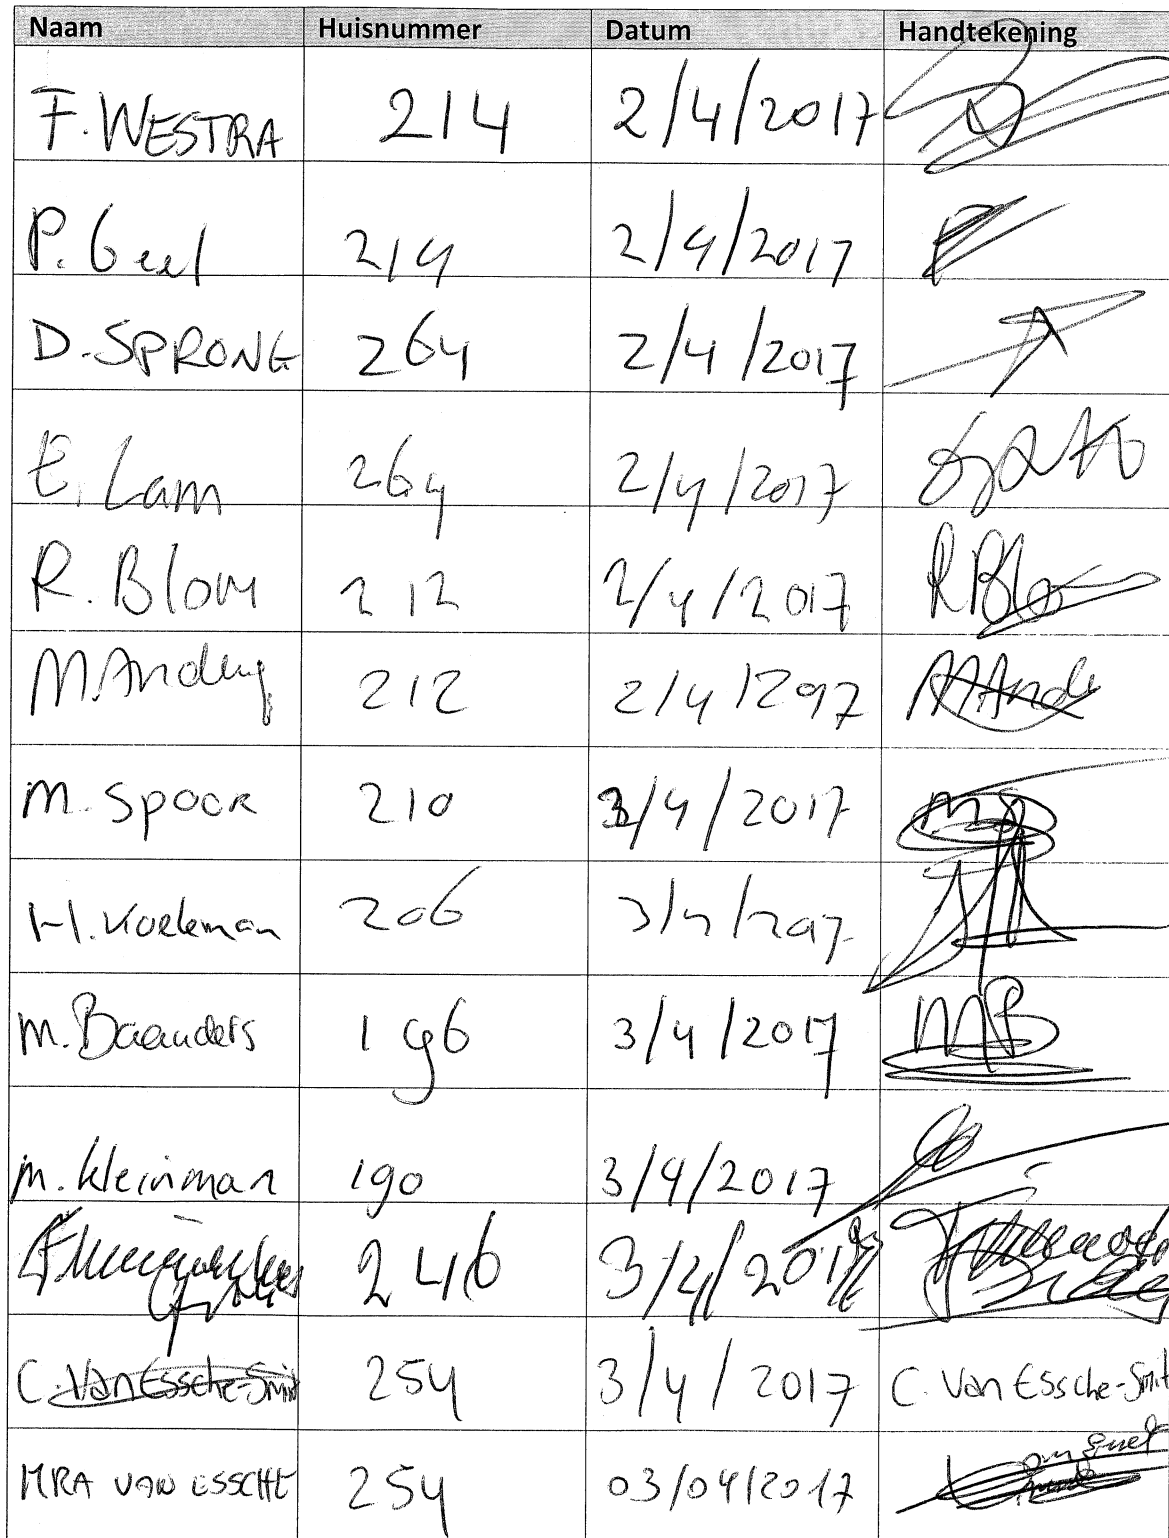 Naam Huisnummer Datum Handtekening
F. WESTRA 214 2/4/2017
P. Geel 214 2/4/2017
D. SPRONG 264 2/4/2017
E. Lam 264 2/4/2017
R. Blom 212 2/4/2017 R Blo
M. 212 2/4/2017 M Ande
M. Spoor 210 3/4/2017 MS
H. Koeleman 206 3/4/2017
M. Baanders 196 3/4/2017 MB
M. Kleinman 190 3/4/2017
246 3/4/2017
C. Van Essche-Smit 254 3/4/2017 C. Van Essche-Smit
MRA VAN ESSCHE 254 03/04/2017